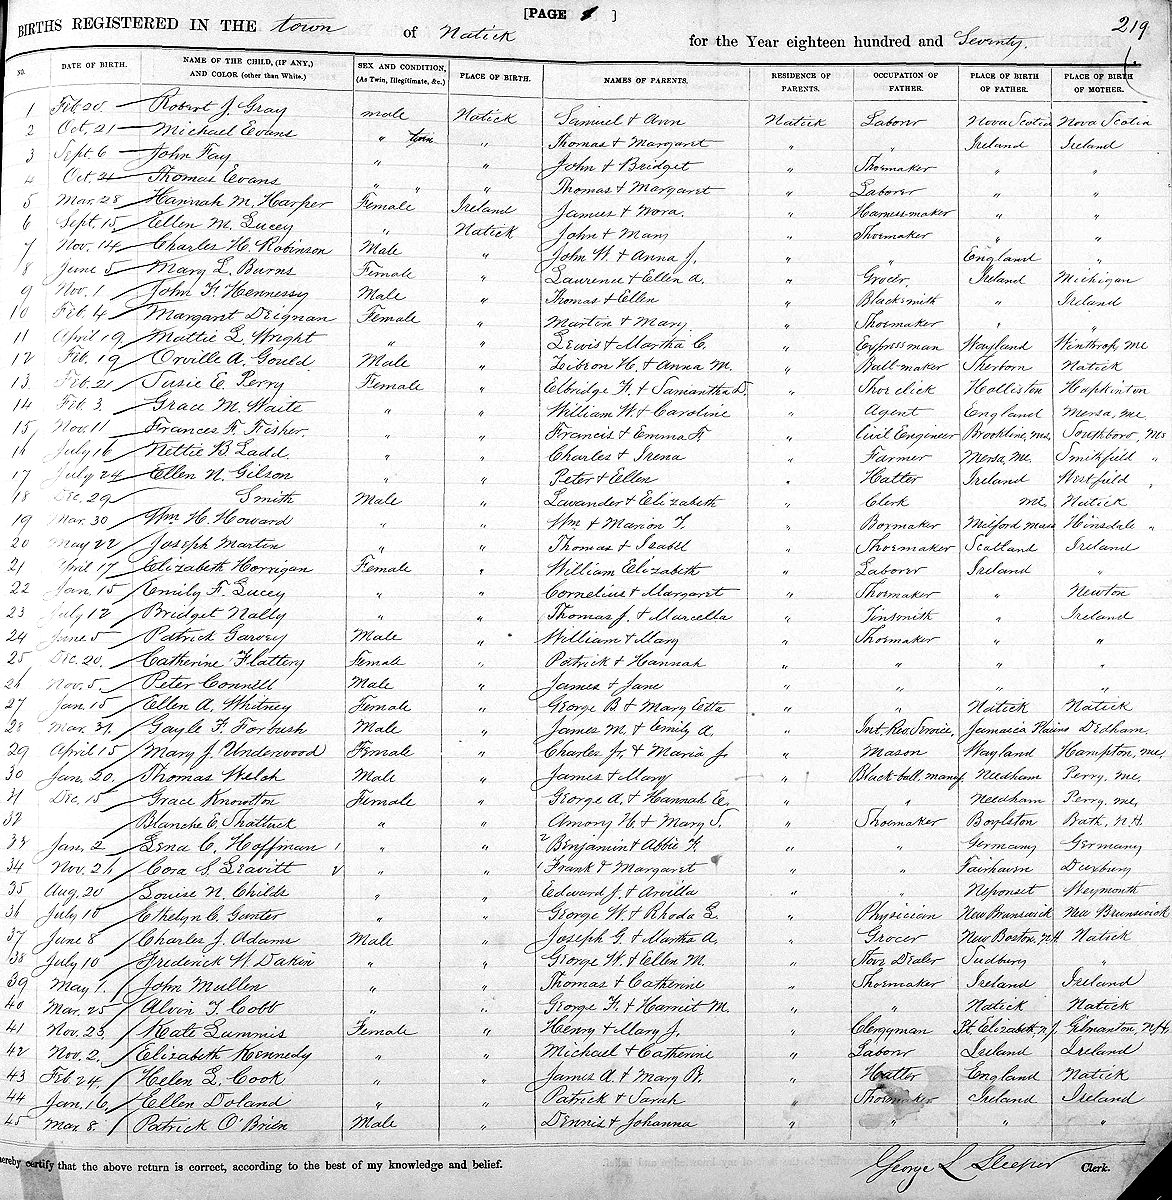 [PAGE ]
219
BIRTHS REGISTERED IN THE town of Natick for the Year eighteen hundred and Seventy.
NO. DATE OF BIRTH. NAME OF THE CHILD, (IF ANY,) AND COLOR (other than White.) SEX AND CONDITION, (As Twin, Illegitimate, &c.) PLACE OF BIRTH. NAMES OF PARENTS. RESIDENCE OF PARENTS. OCCUPATION OF FATHER. PLACE OF BIRTH OF FATHER. PLACE OF BIRTH OF MOTHER.
1 Feb. 20 Robert J. Gray male Natick Samuel & Ann Natick Laborer Nova Scotia Nova Scotia
2 Oct. 21 Michael Evans " twin " Thomas & Margaret " " Ireland Ireland
3 Sept. 6 John Fay " " John & Bridget " Shoemaker " "
4 Oct. 21 Thomas Evans " " " Thomas & Margaret " Laborer " "
5 Mar. 28 Hannah M. Harper Female Ireland James & Nora. " Harness-maker " "
6 Sept. 15 Ellen M. Lucey " Natick John & Mary " Shoemaker " "
7 Nov. 14 Charles H. Robinson Male " John W. & Anna J. " " England "
8 June 5 Mary L. Burns Female " Laurence & Ellen A. " Grocer Ireland Michigan
9 Nov. 1 John F. Hennessy Male " Thomas & Ellen " Blacksmith " Ireland
10 Feb. 4 Margaret Deignan Female " Martin & Mary " Shoemaker " "
11 April 19 Mattie L. Wright " " Lewis & Martha C. " Expressman Wayland Winthrop, Me
12 Feb. 19 Orville A. Gould Male " H. & Anna M. " Ball-maker Sherborn Natick
13 Feb. 21 Susie E. Perry Female " Elbridge F. & Samantha D. " Shoe click Holliston Hopkinton
14 Feb. 3. Grace M. Waite " " William W. & Caroline " Agent England Me
15 Nov. 11 Frances F. Fisher. " " Francis & Emma F " Civil Engineer Brookline, Ms, Southboro, Ms
16 July 16 Nettie B. Ladd " " Charles & Irena " Farmer Me. Smithfield "
17 July 24 Ellen N. Gilson " " Peter & Ellen " Hatter Ireland Westfield "
18 Dec. 29 Smith Male " Lavander & Elizabeth " Clerk Me, Natick
19 Mar. 30 Wm. H. Howard " " Wm & Marion F. " Boxmaker Milford Mass Hinsdale "
20 May 22 Joseph Martin " " Thomas & Isabel " Shoemaker Scotland Ireland
21 April 17 Elizabeth Horrigan Female " William Elizabeth " Laborer Ireland "
22 Jan. 15 Emily F. Lucey " " Cornelius & Margaret " Shoemaker " Newton
23 July 12 Bridget Nally " " Thomas J. & Marcella " Tinsmith " Ireland
24 June 5 Patrick Garvey Male " William & Mary " Shoemaker " "
25 Dec. 20. Catherine Flattery Female " Patrick & Hannah " " " "
26 Nov. 5. Peter Connell Male " James & Jane " " " "
27 Jan. 15 Ellen A. Whitney Female " George B. & Mary Etta " " Natick Natick
28 Mar. 31 Gayle F. Forbush Male " James M. & Emily A. " Int. Rev. Service, Jamaica Plains Dedham.
29 April 15 Mary J. Underwood Female " Charles Jr. & Maria J. " Mason Wayland Hampton, Me,
30 Jan. 20, Thomas Welsh Male " James & Mary " Black-ball. manf. Needham Perry, Me,
31 Dec. 15 Grace Knowlton Female " George A. & Hannah E. " " Needham Perry, Me,
32 Blanche E. Shattuck " " Amory H. & Mary S. " Shoemaker Boylston Bath, N.H.
33 Jan. 2 Lena C. Hoffman 1 " " 2 Benjamin & Abbie F. " " Germany Germany
34 Nov. 21 Cora S. Leavitt 2 " " 1 Frank & Margaret " " Fairhaven Duxbury
35 Aug. 20 Louise N. Childs " " Edward J. & Arvilla " " Neponset Weymouth
36 July 10 Ethelyn C. Gunter " " George W. & Rhoda E. " Physician New Brunswick New Brunswick
37 June 8 Charles J. Adams Male " Joseph G. & Martha A. " Grocer New Boston, N.H Natick
38 July 10 Frederick W. Dakin " " George W. & Ellen M. " Stove Dealer Sudbury "
39 May 7. John Mullen " " Thomas & Catherine " Shoemaker Ireland Ireland
40 Mar. 25 Alvin T. Cobb " " George F. & Harriet M. " " Natick Natick
41 Nov. 23, Kate Lummis Female " Henry & Mary J. " Clergyman Pt. Elizabeth, N.J. Gilmanton, N.H.
42 Nov. 2. Elizabeth Kennedy " " Michael & Catherine " Laborer Ireland Ireland
43 Feb. 24. Helen L. Cook " " James A. & Mary B. " Hatter England Natick
44 Jan. 16, Ellen Doland " " Patrick & Sarah " Shoemaker Ireland Ireland
45 Mar. 8. Patrick O'Brien Male " Dennis & Johanna " " " "
hereby certify that the above return is correct, according to the best of my knowledge and belief. George L. Sleeper Clerk.